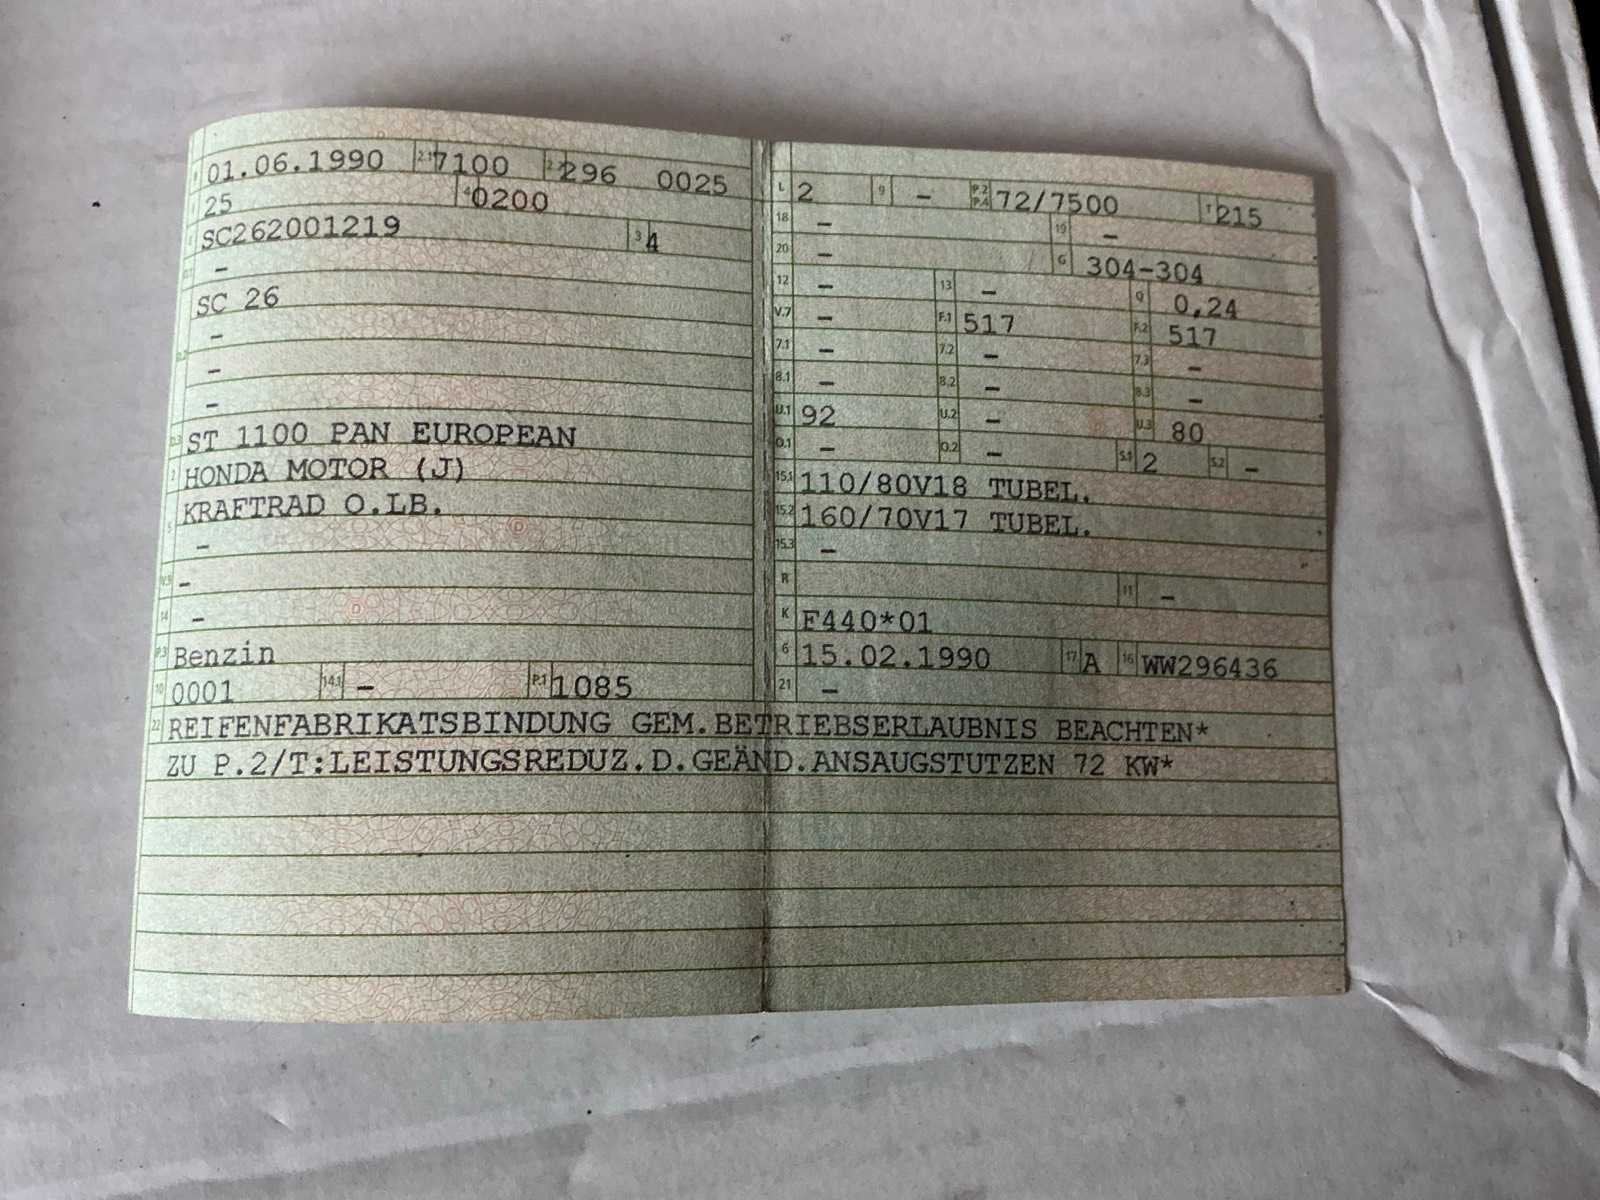 01.06.1990 2.1 7100 2.2 296 0025
25 4 0200
SC262001219 3 4
-
SC 26
-
-
-
D.3 ST 1100 PAN EUROPEAN
2 HONDA MOTOR (J)
5 KRAFTRAD O.LB.
-
V.9 -
14 -
P.3 Benzin
10 0001 14.1 - P.1 1085
L 2 9 - P.2 P.4 72/7500 T 215
18 - 19 -
20 - G 304-304
12 - 13 - Q 0,24
V.7 - F.1 517 F.2 517
7.1 - 7.2 - 7.3 -
8.1 - 8.2 - 8.3 -
U.1 92 U.2 - U.3 80
O.1 - O.2 - S.1 2 S.2 -
15.1 110/80V18 TUBEL.
15.2 160/70V17 TUBEL.
15.3 -
R 11 -
K F440*01
6 15.02.1990 17 A 16 WW296436
21 -
22 REIFENFABRIKATSBINDUNG GEM.BETRIEBSERLAUBNIS BEACHTEN*
ZU P.2/T:LEISTUNGSREDUZ.D.GEÄND.ANSAUGSTUTZEN 72 KW*